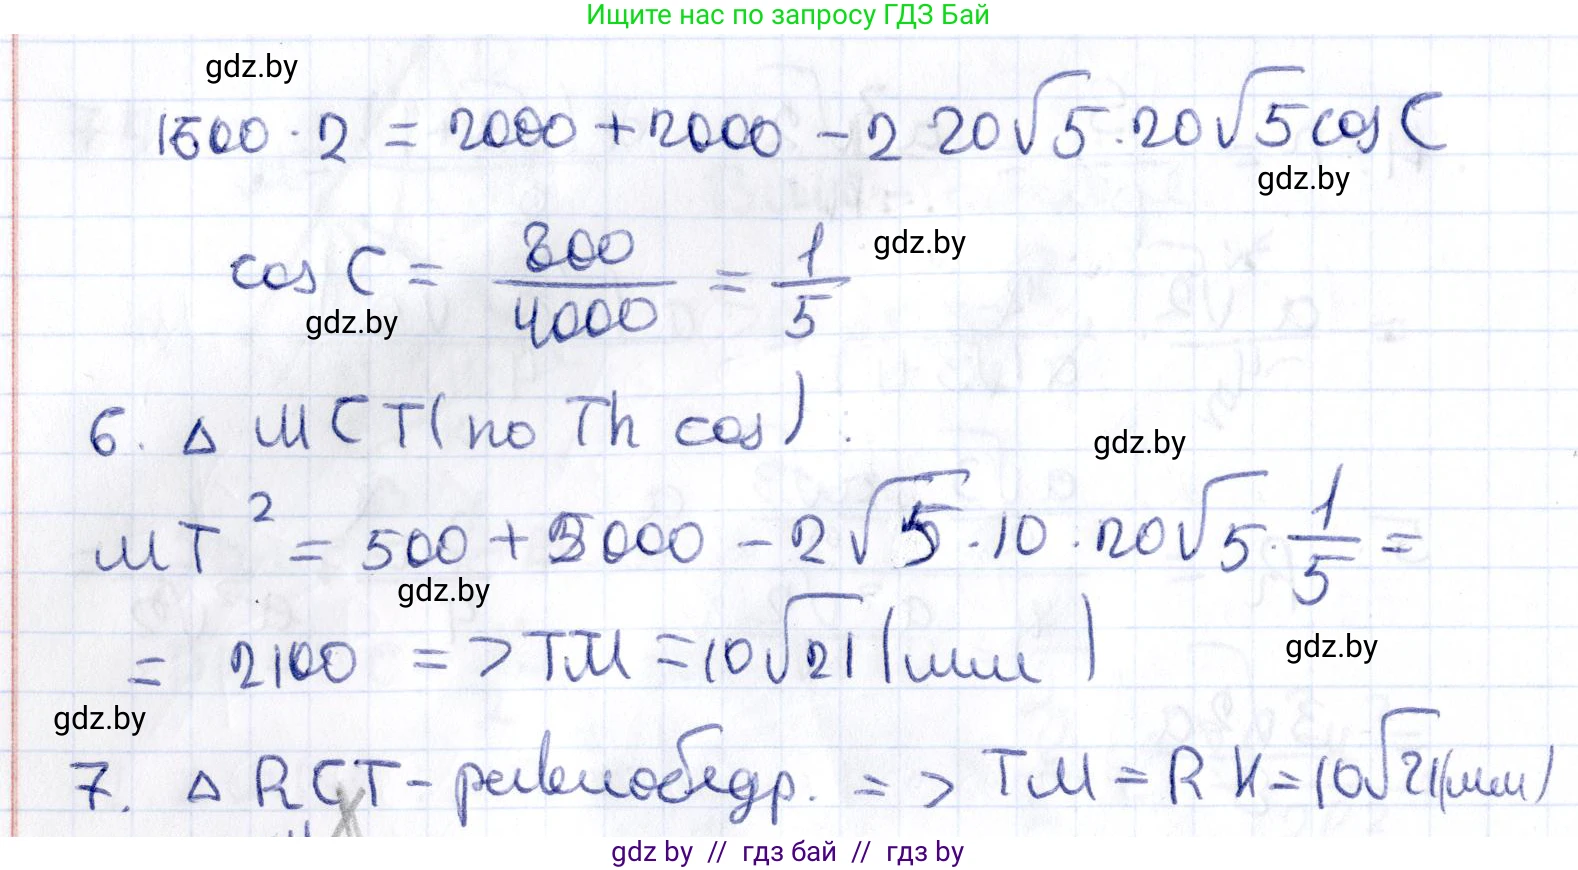 Ищите нас по запросу ГДЗ Бай
gdz.by
1600 · 2 = 2000 + 2000 - 2 20√5 · 20√5 cos C
gdz.by
cos C = 800/4000 = 1/5
gdz.by
gdz.by
6. △ MCT (по Th cos).
gdz.by
MT² = 500 + 2000 - 2√5 · 10 · 20√5 · 1/5 =
gdz.by
= 2100 => TM = 10√21 (мм)
gdz.by
gdz.by
7. △ RCT - равнобедр. => TM = RK = 10√21 (мм)
gdz by // гдз бай // гдз by